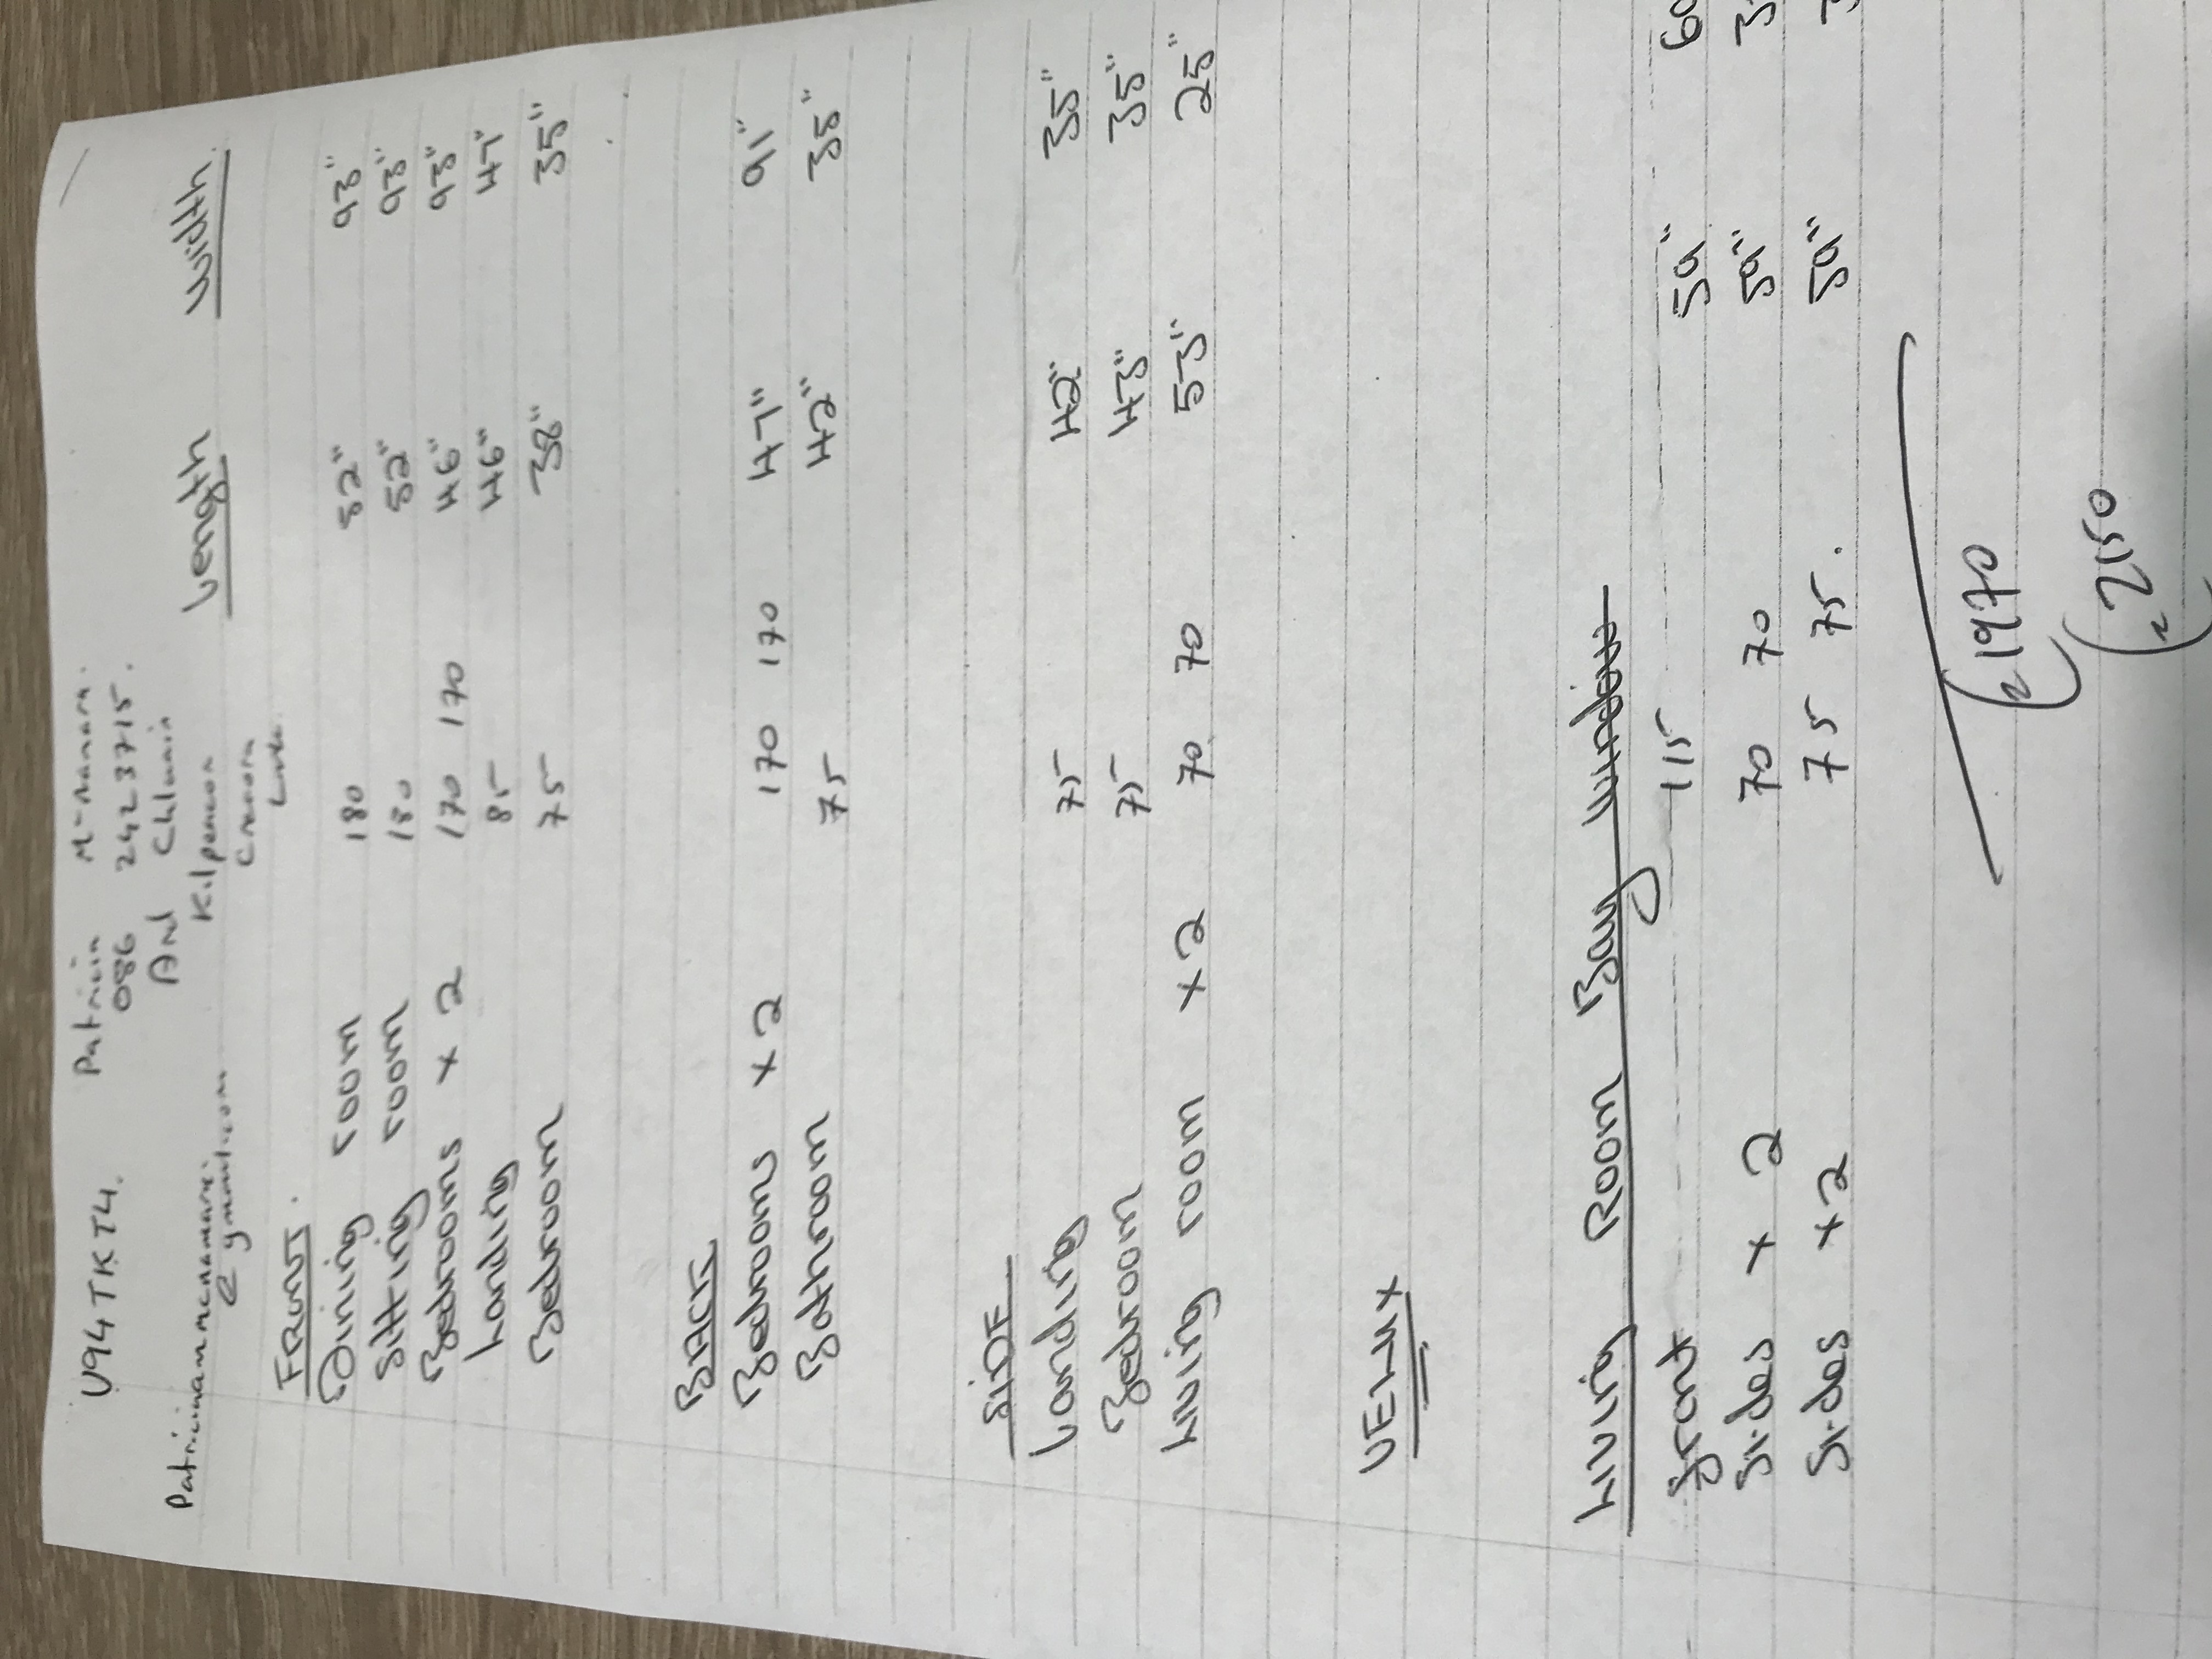 V94TKT4. Patricia M-namara.
086 2423715.
And Chluain
Patriciammcnamara. Kilpeacon
@ gmail.com Crecora
Length Width.
FRONT.
Dining room 180 52" 93"
Sitting room 180 52" 93"
Bedrooms x 2 170 170 46" 93"
Landing 85 46" 47"
Bedroom 75 38" 35"
BACK
Bedrooms x 2 170 170 47" 91"
Bathroom 75 42" 35"
SIDE
Landing 75 42" 35"
Bedroom 75 43" 35"
Living room x 2 70 70 53" 25"
VELUX
Living Room Bay Window
Front 115 59" 60
Sides x 2 70 70 59" 3
Sides x 2 75 75. 59" 3
1970
2150